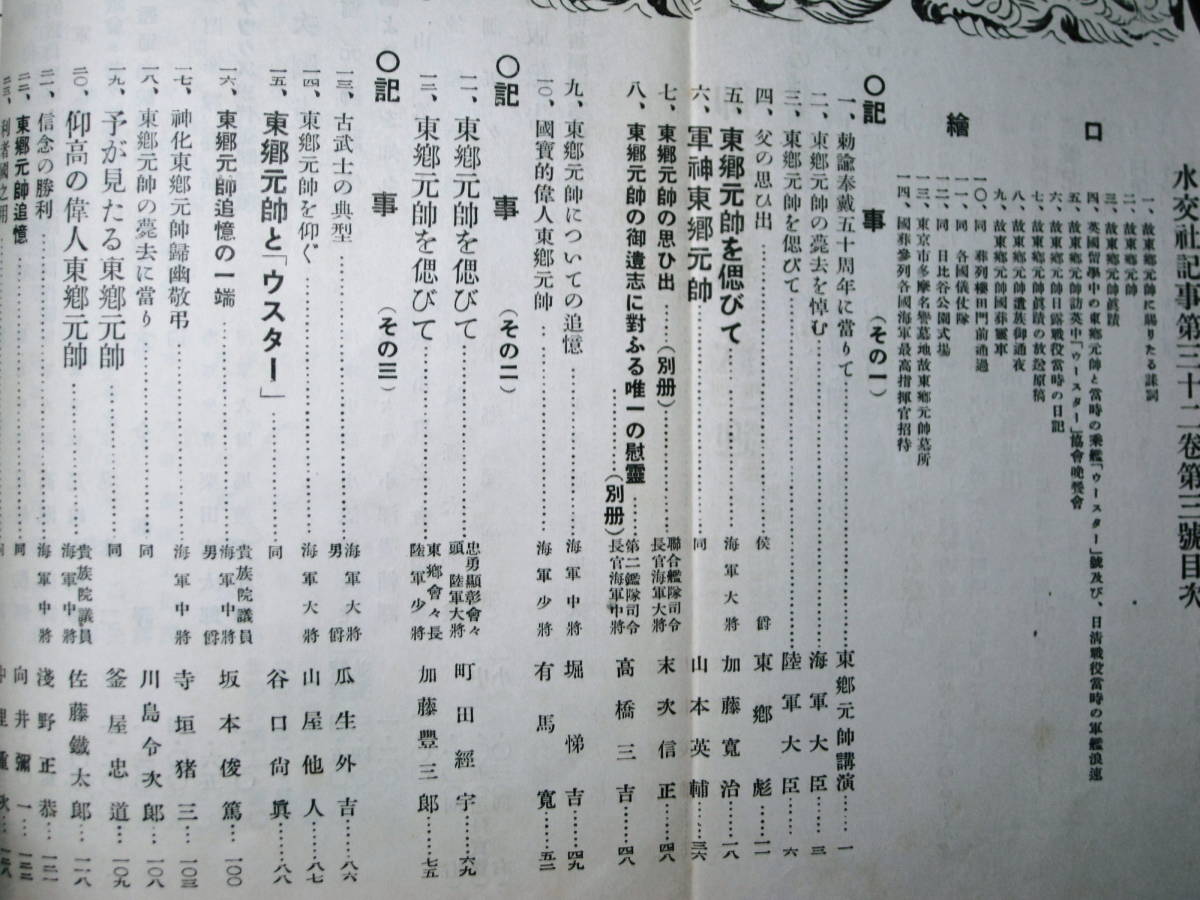 水交社記事第三十二卷第三號目次
口
繪
一、故東鄉元帥に賜りたる誄詞
二、故東鄉元帥
三、故東鄉元帥眞蹟
四、英國留學中の東鄉元帥と當時の乘艦「ウースター」號及び、日清戰役當時の軍艦浪速
五、故東鄉元帥訪英中「ウースター」協會晩餐會
六、故東鄉元帥日露戰役當時の日記
七、故東鄉元帥眞蹟の放送原稿
八、故東鄉元帥遺族御通夜
九、故東鄉元帥國葬靈車
一〇、同 葬列櫻田門前通過
一一、同 各國儀仗隊
一二、同 日比谷公園式場
一三、東京市多摩名譽墓地故東鄉元帥墓所
一四、國葬參列各國海軍最高指揮官招待
〇記事(その一)
一、勅諭奉戴五十周年に當りて……東鄉元帥講演……一
二、東鄉元帥の薨去を悼む……海軍大臣……三
三、東鄉元帥を偲びて……陸軍大臣……六
四、父の思ひ出……侯爵 東鄉彪……一一
五、東鄉元帥を偲びて……海軍大將 加藤寬治……一八
六、軍神東鄉元帥……同 山本英輔……三六
七、東鄉元帥の思ひ出……(別册)……聯合艦隊司令長官海軍大將 末次信正……四八
八、東鄉元帥の御遺志に對ふる唯一の慰靈……(別册)……第二艦隊司令長官海軍中將 高橋三吉……四八
九、東鄉元帥についての追憶……海軍中將 堀悌吉……四九
一〇、國寶的偉人東鄉元帥……海軍少將 有馬寬……五二
〇記事(その二)
一一、東鄉元帥を偲びて……忠勇顯彰會々頭 陸軍大將 町田經宇……六九
一二、東鄉元帥を偲びて……東鄉會々長 陸軍少將 加藤豐三郎……七五
〇記事(その三)
一三、古武士の典型……海軍大將 男爵 瓜生外吉……八六
一四、東鄉元帥を仰ぐ……海軍大將 山屋他人……八七
一五、東鄉元帥と「ウスター」……同 谷口尙眞……八八
一六、東鄉元帥追憶の一端……貴族院議員 海軍中將 男爵 坂本俊篤……一〇〇
一七、神化東鄉元帥歸幽敬弔……海軍中將 寺垣猪三……一〇三
一八、東鄉元帥の薨去に當り……同 川島令次郎……一〇八
一九、予が見たる東鄉元帥……同 釜屋忠道……一〇九
二〇、仰高の偉人東鄉元帥……貴族院議員 海軍中將 佐藤鐵太郎……一一八
二一、信念の勝利……海軍中將 淺野正恭……一二一
二二、東鄉元帥追憶……同 向井彌一……一二二